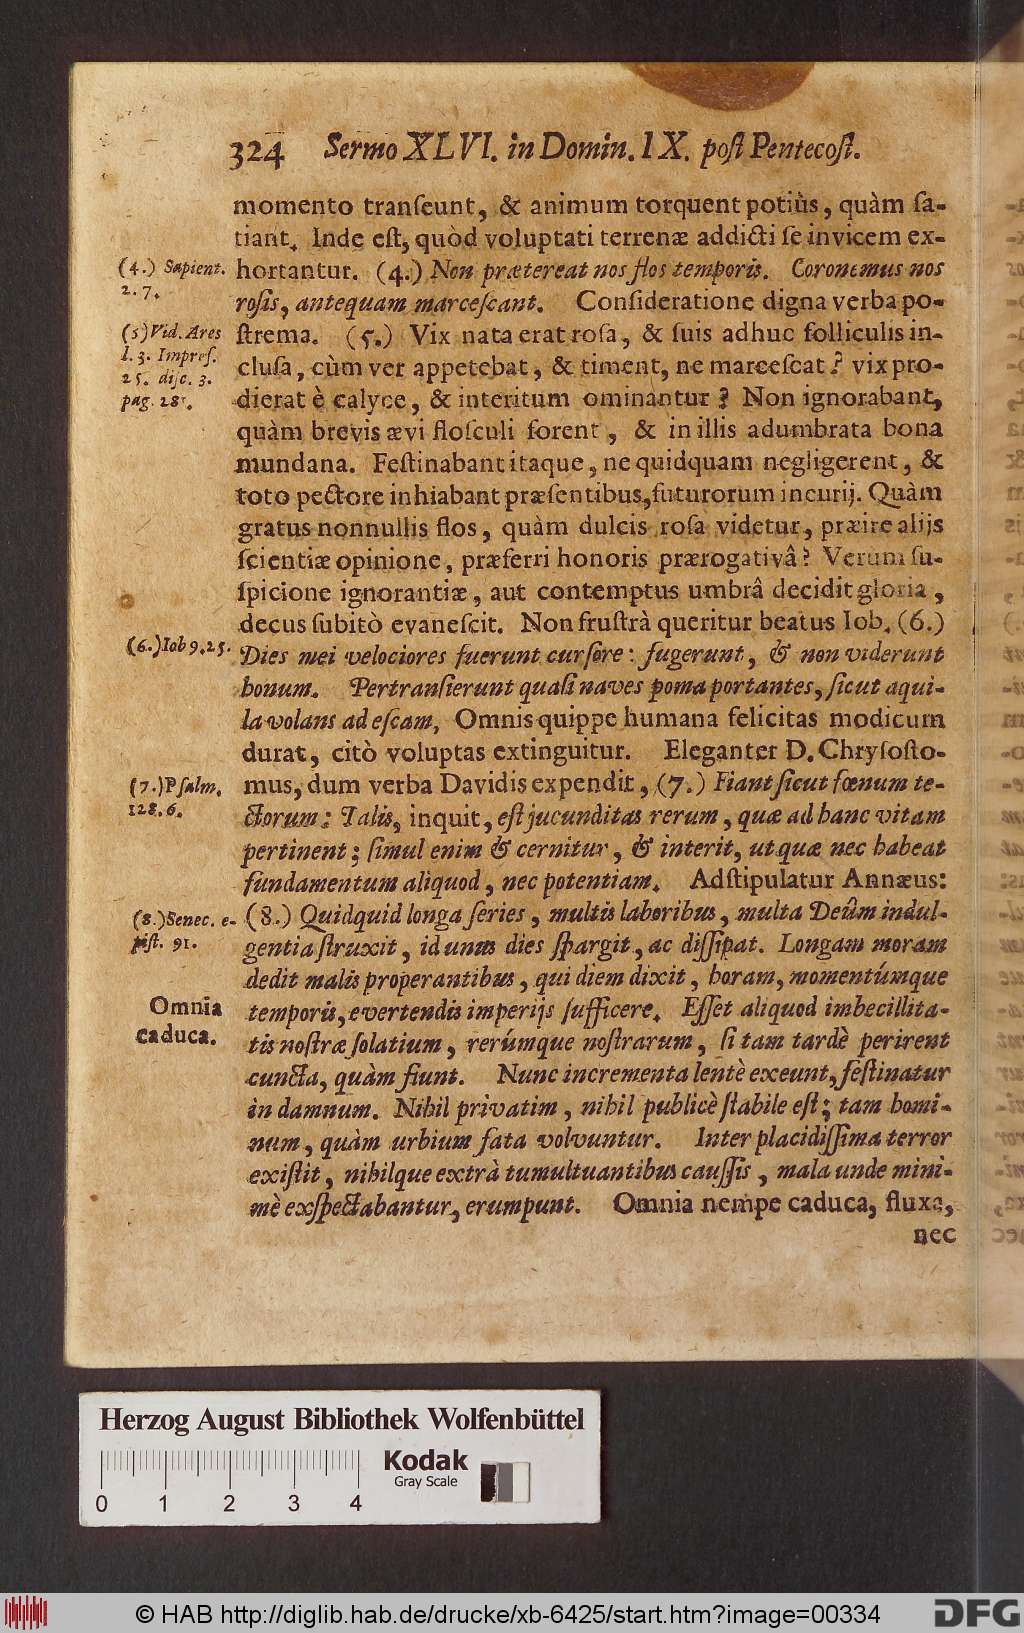 324 Sermo XLVI. in Domin. IX. poſt Pentecoſt.
momento tranſeunt, & animum torquent potiùs, quàm ſa-
tiant. Inde eſt, quòd voluptati terrenæ addicti ſe invicem ex-
hortantur. (4.) Non prætereat nos flos temporis. Coronemus nos
roſis, antequam marceſcant. Conſideratione digna verba po-
ſtrema. (5.) Vix nata erat roſa, & ſuis adhuc folliculis in-
cluſa, cùm ver appetebat, & timent, ne marceſcat? vix pro-
dierat è calyce, & interitum ominantur? Non ignorabant,
quàm brevis ævi floſculi forent, & in illis adumbrata bona
mundana. Feſtinabant itaque, ne quidquam negligerent, &
toto pectore inhiabant præſentibus, futurorum incurij. Quàm
gratus nonnullis flos, quàm dulcis roſa videtur, præire alijs
ſcientiæ opinione, præferri honoris prærogativâ? Verum ſu-
ſpicione ignorantiæ, aut contemptus umbrâ decidit gloria,
decus ſubitò evaneſcit. Non fruſtrà queritur beatus Iob. (6.)
Dies mei velociores fuerunt curſore: fugerunt, & non viderunt
bonum. Pertranſierunt quaſi naves poma portantes, ſicut aqui-
la volans ad eſcam, Omnis quippe humana felicitas modicum
durat, citò voluptas extinguitur. Eleganter D. Chryſoſto-
mus, dum verba Davidis expendit, (7.) Fiant ſicut fœnum te-
ctorum: Talis, inquit, eſt jucunditas rerum, quæ ad hanc vitam
pertinent; ſimul enim & cernitur, & interit, ut quæ nec habeat
fundamentum aliquod, nec potentiam. Adſtipulatur Annæus:
(8.) Quidquid longa ſeries, multis laboribus, multa Deûm indul-
gentia ſtruxit, id unus dies ſpargit, ac diſſipat. Longam moram
dedit malis properantibus, qui diem dixit, horam, momentúmque
temporis, evertendis imperijs ſufficere. Eſſet aliquod imbecillita-
tis noſtræ ſolatium, rerúmque noſtrarum, ſi tam tardè perirent
cuncta, quàm fiunt. Nunc incrementa lentè exeunt, feſtinatur
in damnum. Nihil privatim, nihil publicè ſtabile eſt; tam homi-
num, quàm urbium fata volvuntur. Inter placidiſſima terror
exiſtit, nihilque extrà tumultuantibus cauſſis, mala unde mini-
mè exſpectabantur, erumpunt. Omnia nempe caduca, fluxa,
nec
(4.) Sapient.
2. 7.
(5) Vid. Ares
l. 3. Impreſ.
25. diſc. 3.
pag. 281.
(6.) Iob 9. 25.
(7.) Pſalm.
128. 6.
(8.) Senec. e-
piſt. 91.
Omnia
caduca.
Herzog August Bibliothek Wolfenbüttel
Kodak
Gray Scale
0 1 2 3 4
© HAB http://diglib.hab.de/drucke/xb-6425/start.htm?image=00334
DFG